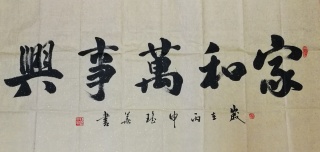 家和萬事興
歲在丙申
書